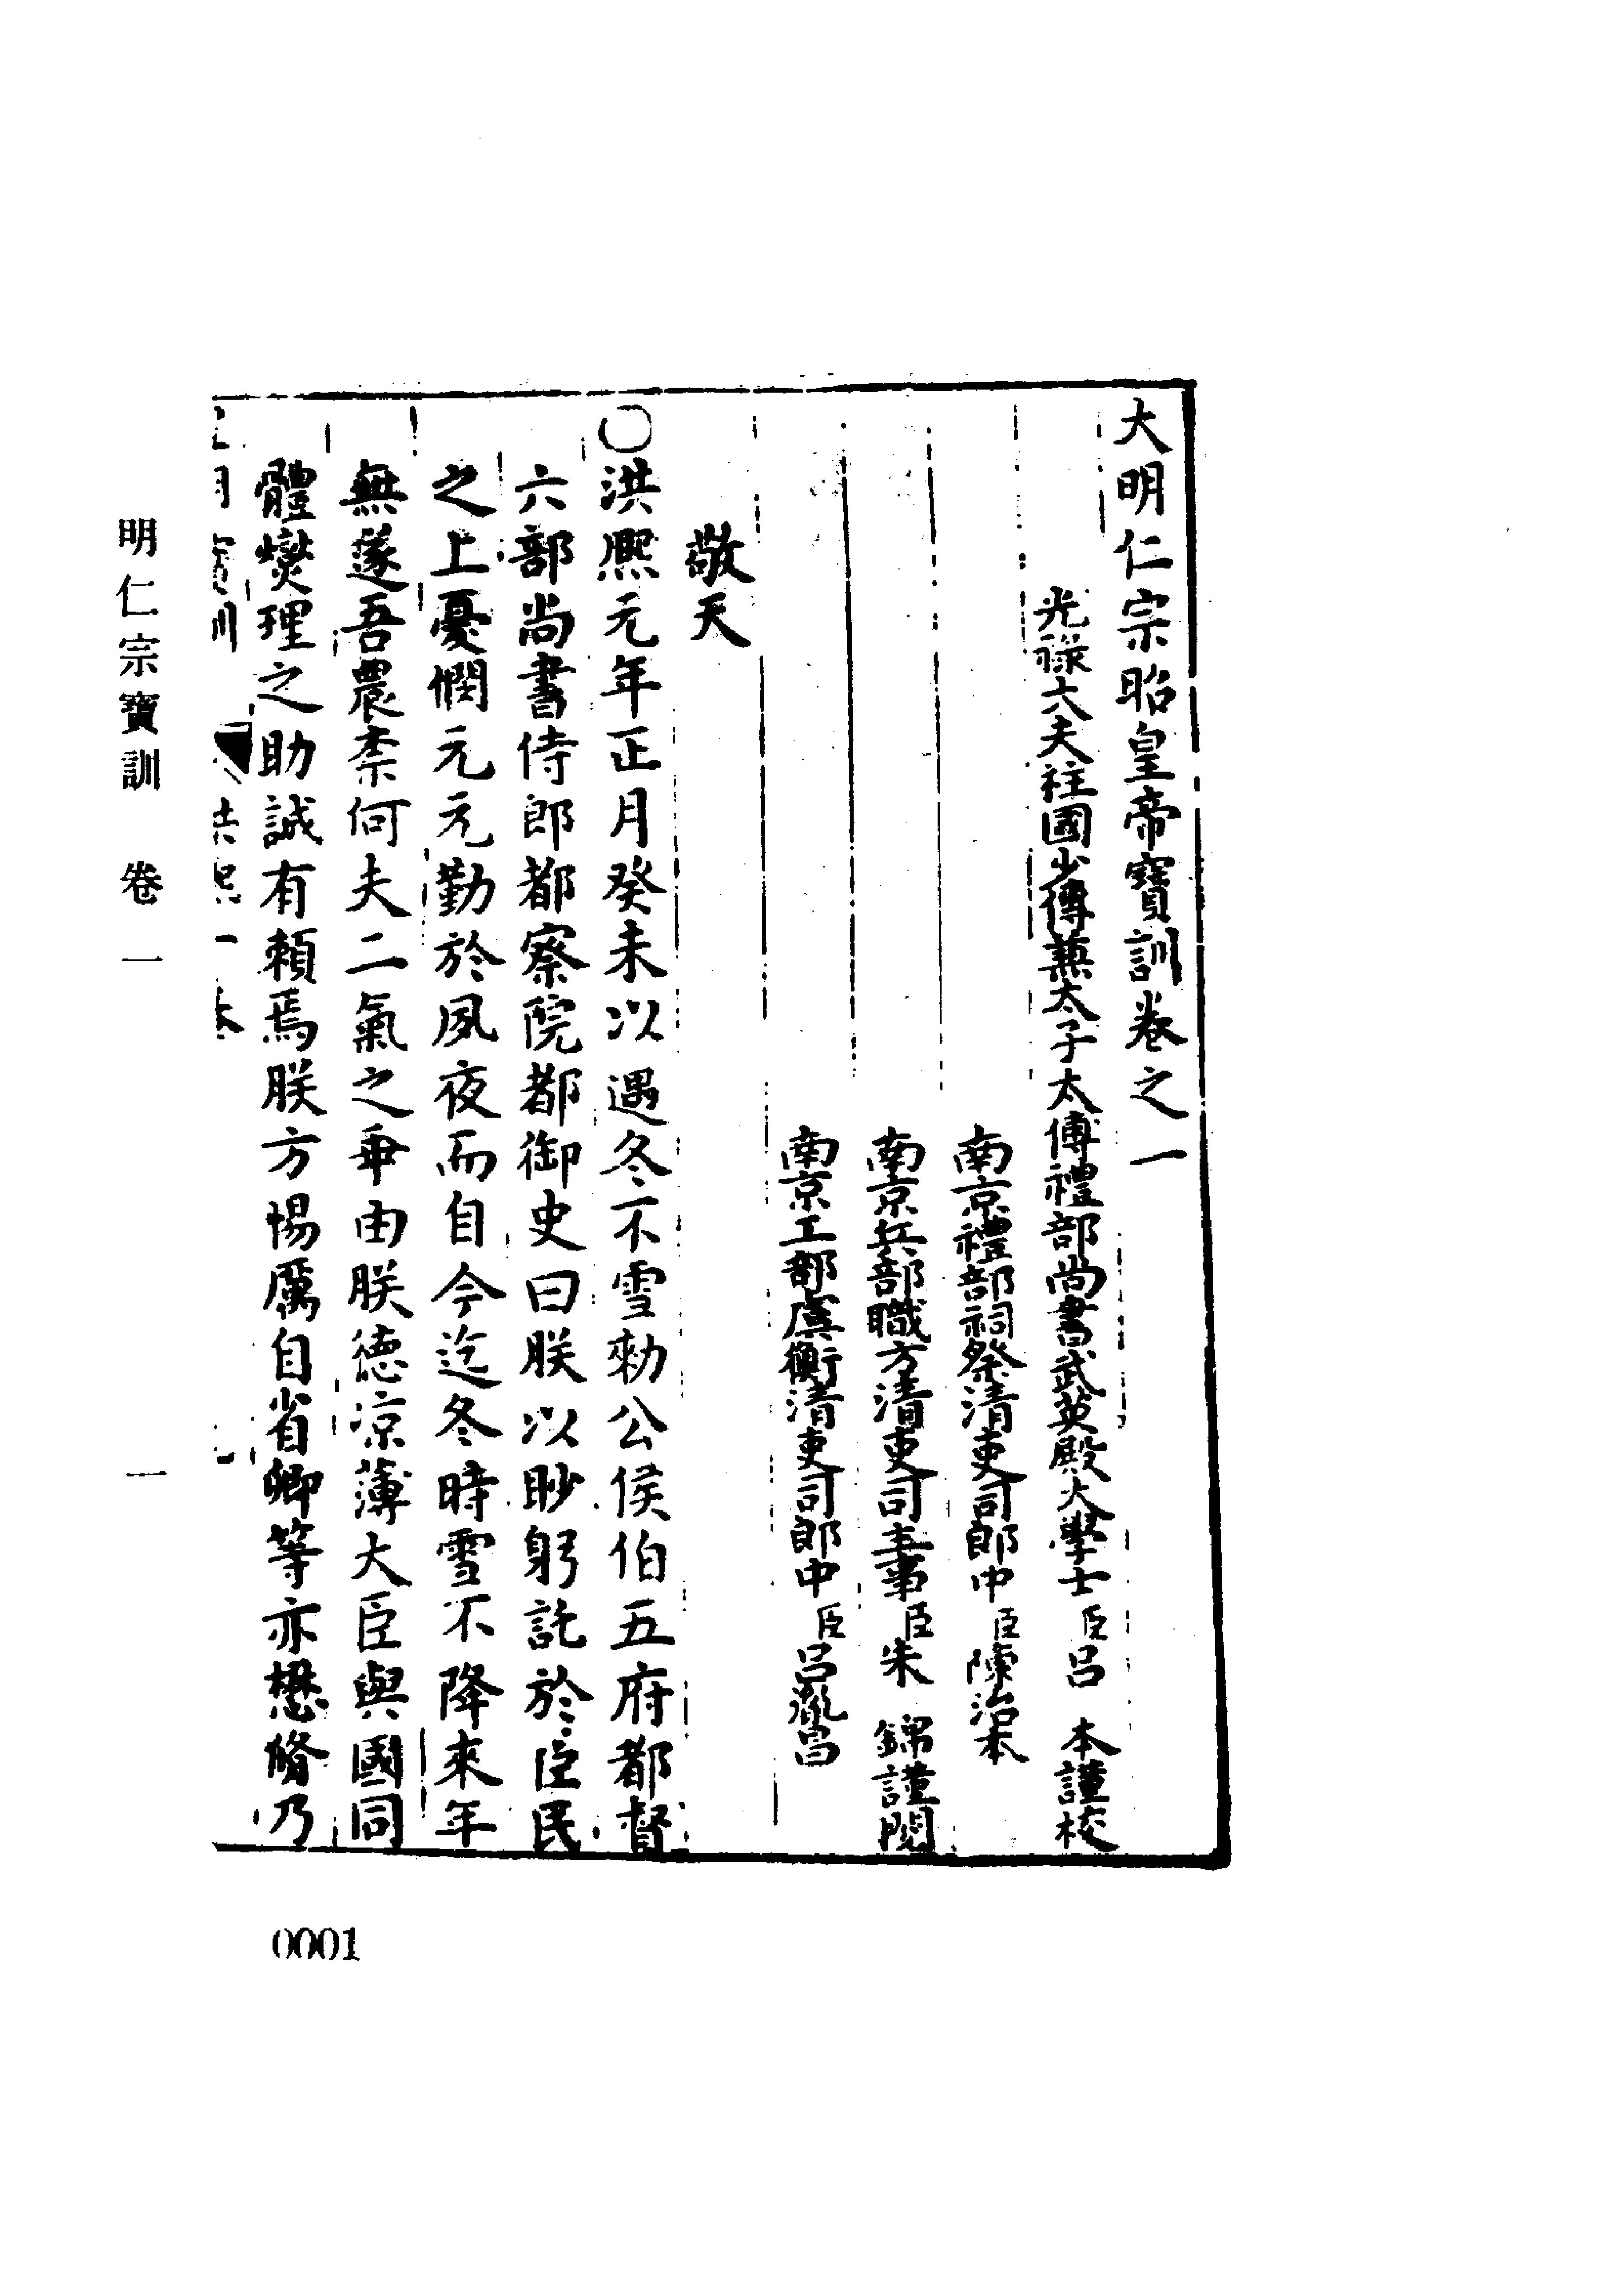 大明仁宗昭皇帝寶訓卷之一
光祿大夫柱國少傅兼太子太傅禮部尚書武英殿大學士臣呂 本謹校
南京禮部祠祭清吏司郎中臣陳治本
南京兵部職方清吏司主事臣朱 錦謹閱
南京工部虞衡清吏司郎中臣呂胤昌
敬天
○洪熙元年正月癸未以遇冬不雪勑公侯伯五府都督
六部尚書侍郎都察院都御史曰朕以眇躬託於臣民
之上憂憫元元勤於夙夜而自今迄冬時雪不降來年
無遂吾農柰何夫二氣之乖由朕德涼薄大臣與國同
體爕理之助誠有賴焉朕方惕厲自省卿等亦懋脩乃
明仁宗寶訓 卷一 一
0001